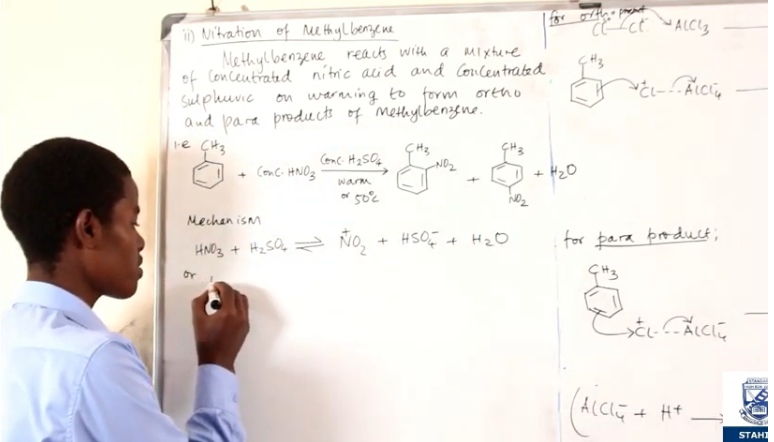 ii) Nitration of Methylbenzene
Methylbenzene reacts with a mixture
of concentrated nitric acid and concentrated
sulphuric on warming to form ortho
and para products of Methylbenzene.
i.e CH₃ CH₃ CH₃
+ Conc. HNO₃ Conc. H₂SO₄ NO₂ + + H₂O
warm
or 50°C NO₂
Mechanism
HNO₃ + H₂SO₄ ⇌ N⁺O₂ + HSO₄⁻ + H₂O
or
for ortho product
Cl — Cl AlCl₃
CH₃
Cl⁺---AlCl₄⁻
for para product;
CH₃
Cl⁺---AlCl₄⁻
(AlCl₄⁻ + H⁺ →
STAHI